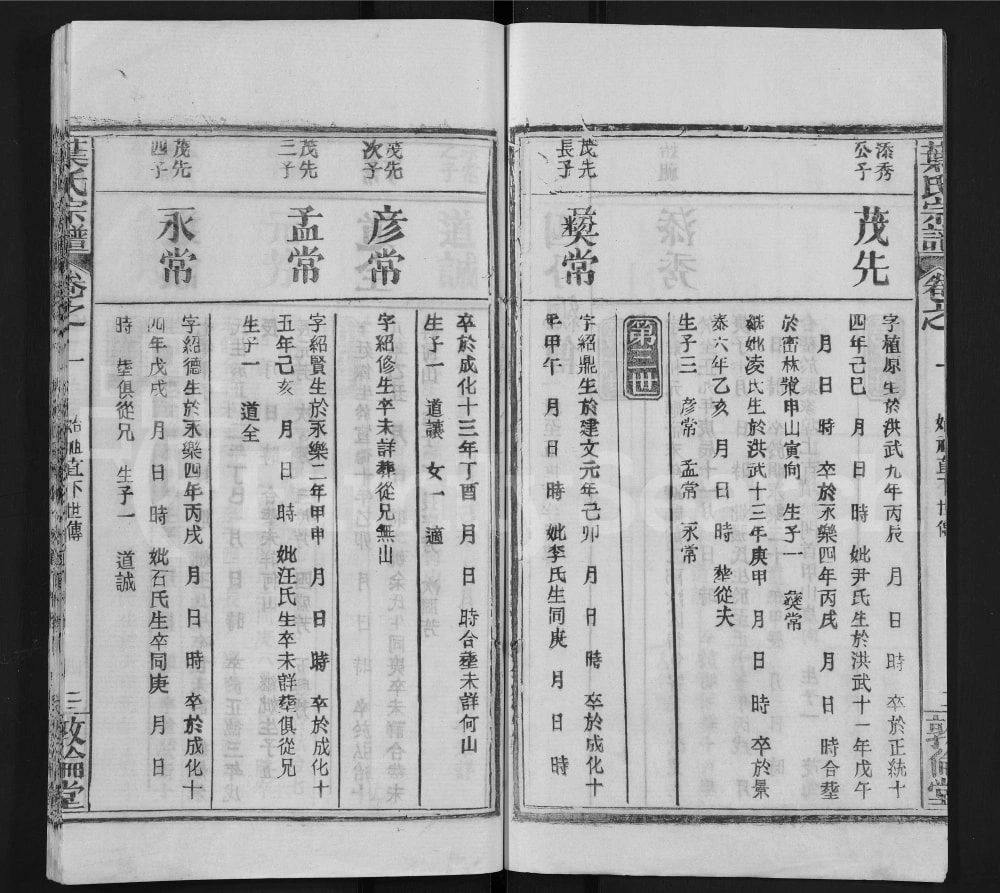 葉氏宗譜
卷之一
二
敦倫堂
添秀
公子
茂先
字植原生於洪武九年丙辰 月 日 時 卒於正統十
四年己巳 月 日 時 妣尹氏生於洪武十一年戊午
月 日 時 卒於永樂四年丙戌 月 日 時合塟
於密林 申山寅向 生子一 㷟常
繼妣凌氏生於洪武十三年庚申 月 日 時 卒於景
泰六年乙亥 月 日 時 塟從夫
生子三 彦常 孟常 永常
第三世
茂先
長子
㷟常
字紹鼎生於建文元年己卯 月 日 時 卒於成化十
年甲午 月 日 時 妣李氏生同庚 月 日 時
卒於成化十三年丁酉 月 日 時合塟未詳何山
生子一 道讓 女一 適
茂先
次子
彦常
字紹修生卒未詳葬從兄無山
茂先
三子
孟常
字紹賢生於永樂二年甲申 月 日 時 卒於成化十
五年己亥 月 日 時 妣汪氏生卒未詳塟俱從兄
生子一 道全
茂先
四子
永常
字紹德生於永樂四年丙戌 月 日 時 卒於成化十
四年戊戌 月 日 時 妣石氏生卒同庚 月 日
時 塟俱從兄 生子一 道誠
葉氏宗譜
卷之一
始祖直下世傳
三
敦倫堂